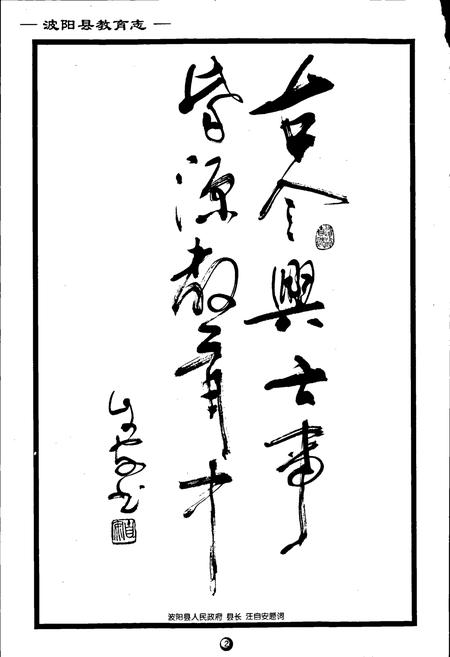 — 波阳县教育志 —
古今興大事
皆源教育中
自安书
波阳县人民政府 县长 汪自安题词
2